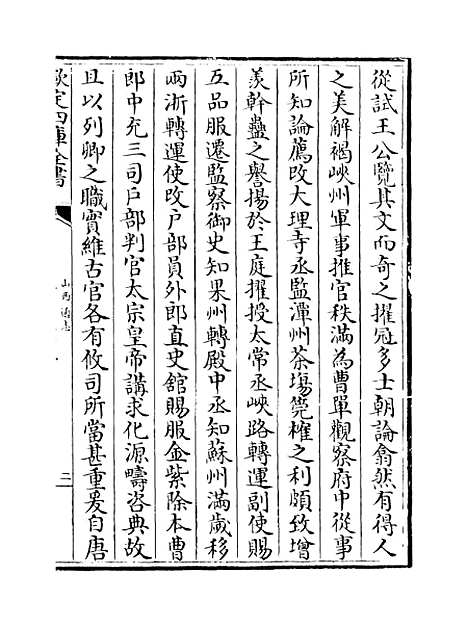 從試王公覽其文而竒之擢冠多士朝論翕然有得人
之美解褐峽州軍事推官秩滿為曹單觀察府中從事
所知論薦改大理寺丞監潭州茶場筦榷之利頗致增
羡幹蠱之譽揚於王庭擢授太常丞峽路轉運副使賜
五品服遷監察御史知果州轉殿中丞知蘇州滿歲移
兩浙轉運使改户部員外郎直史舘賜服金紫除本曹
郎中充三司户部判官太宗皇帝講求化源疇咨典故
且以列卿之職實維古官各有攸司所當甚重爰自唐
欽定四庫全書
山西通志
三